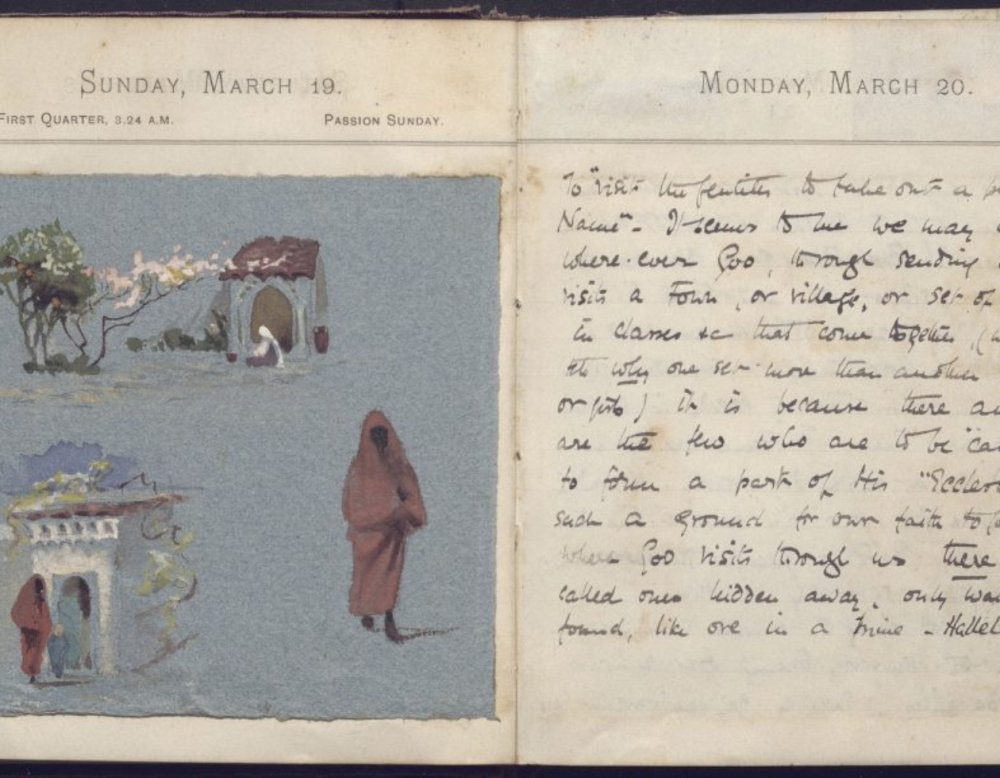 SUNDAY, MARCH 19.
FIRST QUARTER, 3.24 A.M. PASSION SUNDAY.
MONDAY, MARCH 20.
To "visit the Gentiles to take out a
Name" - It seems to me we may
where-ever God, through sending
visits a town, or village, or set of
in classes &c that come together, (
why one set more than another
or girls) it is because there
are the few who are to be
to form a part of His
such a ground for our faith to
where God visits through us there
called ones hidden away, only
found, like ore in a mine -